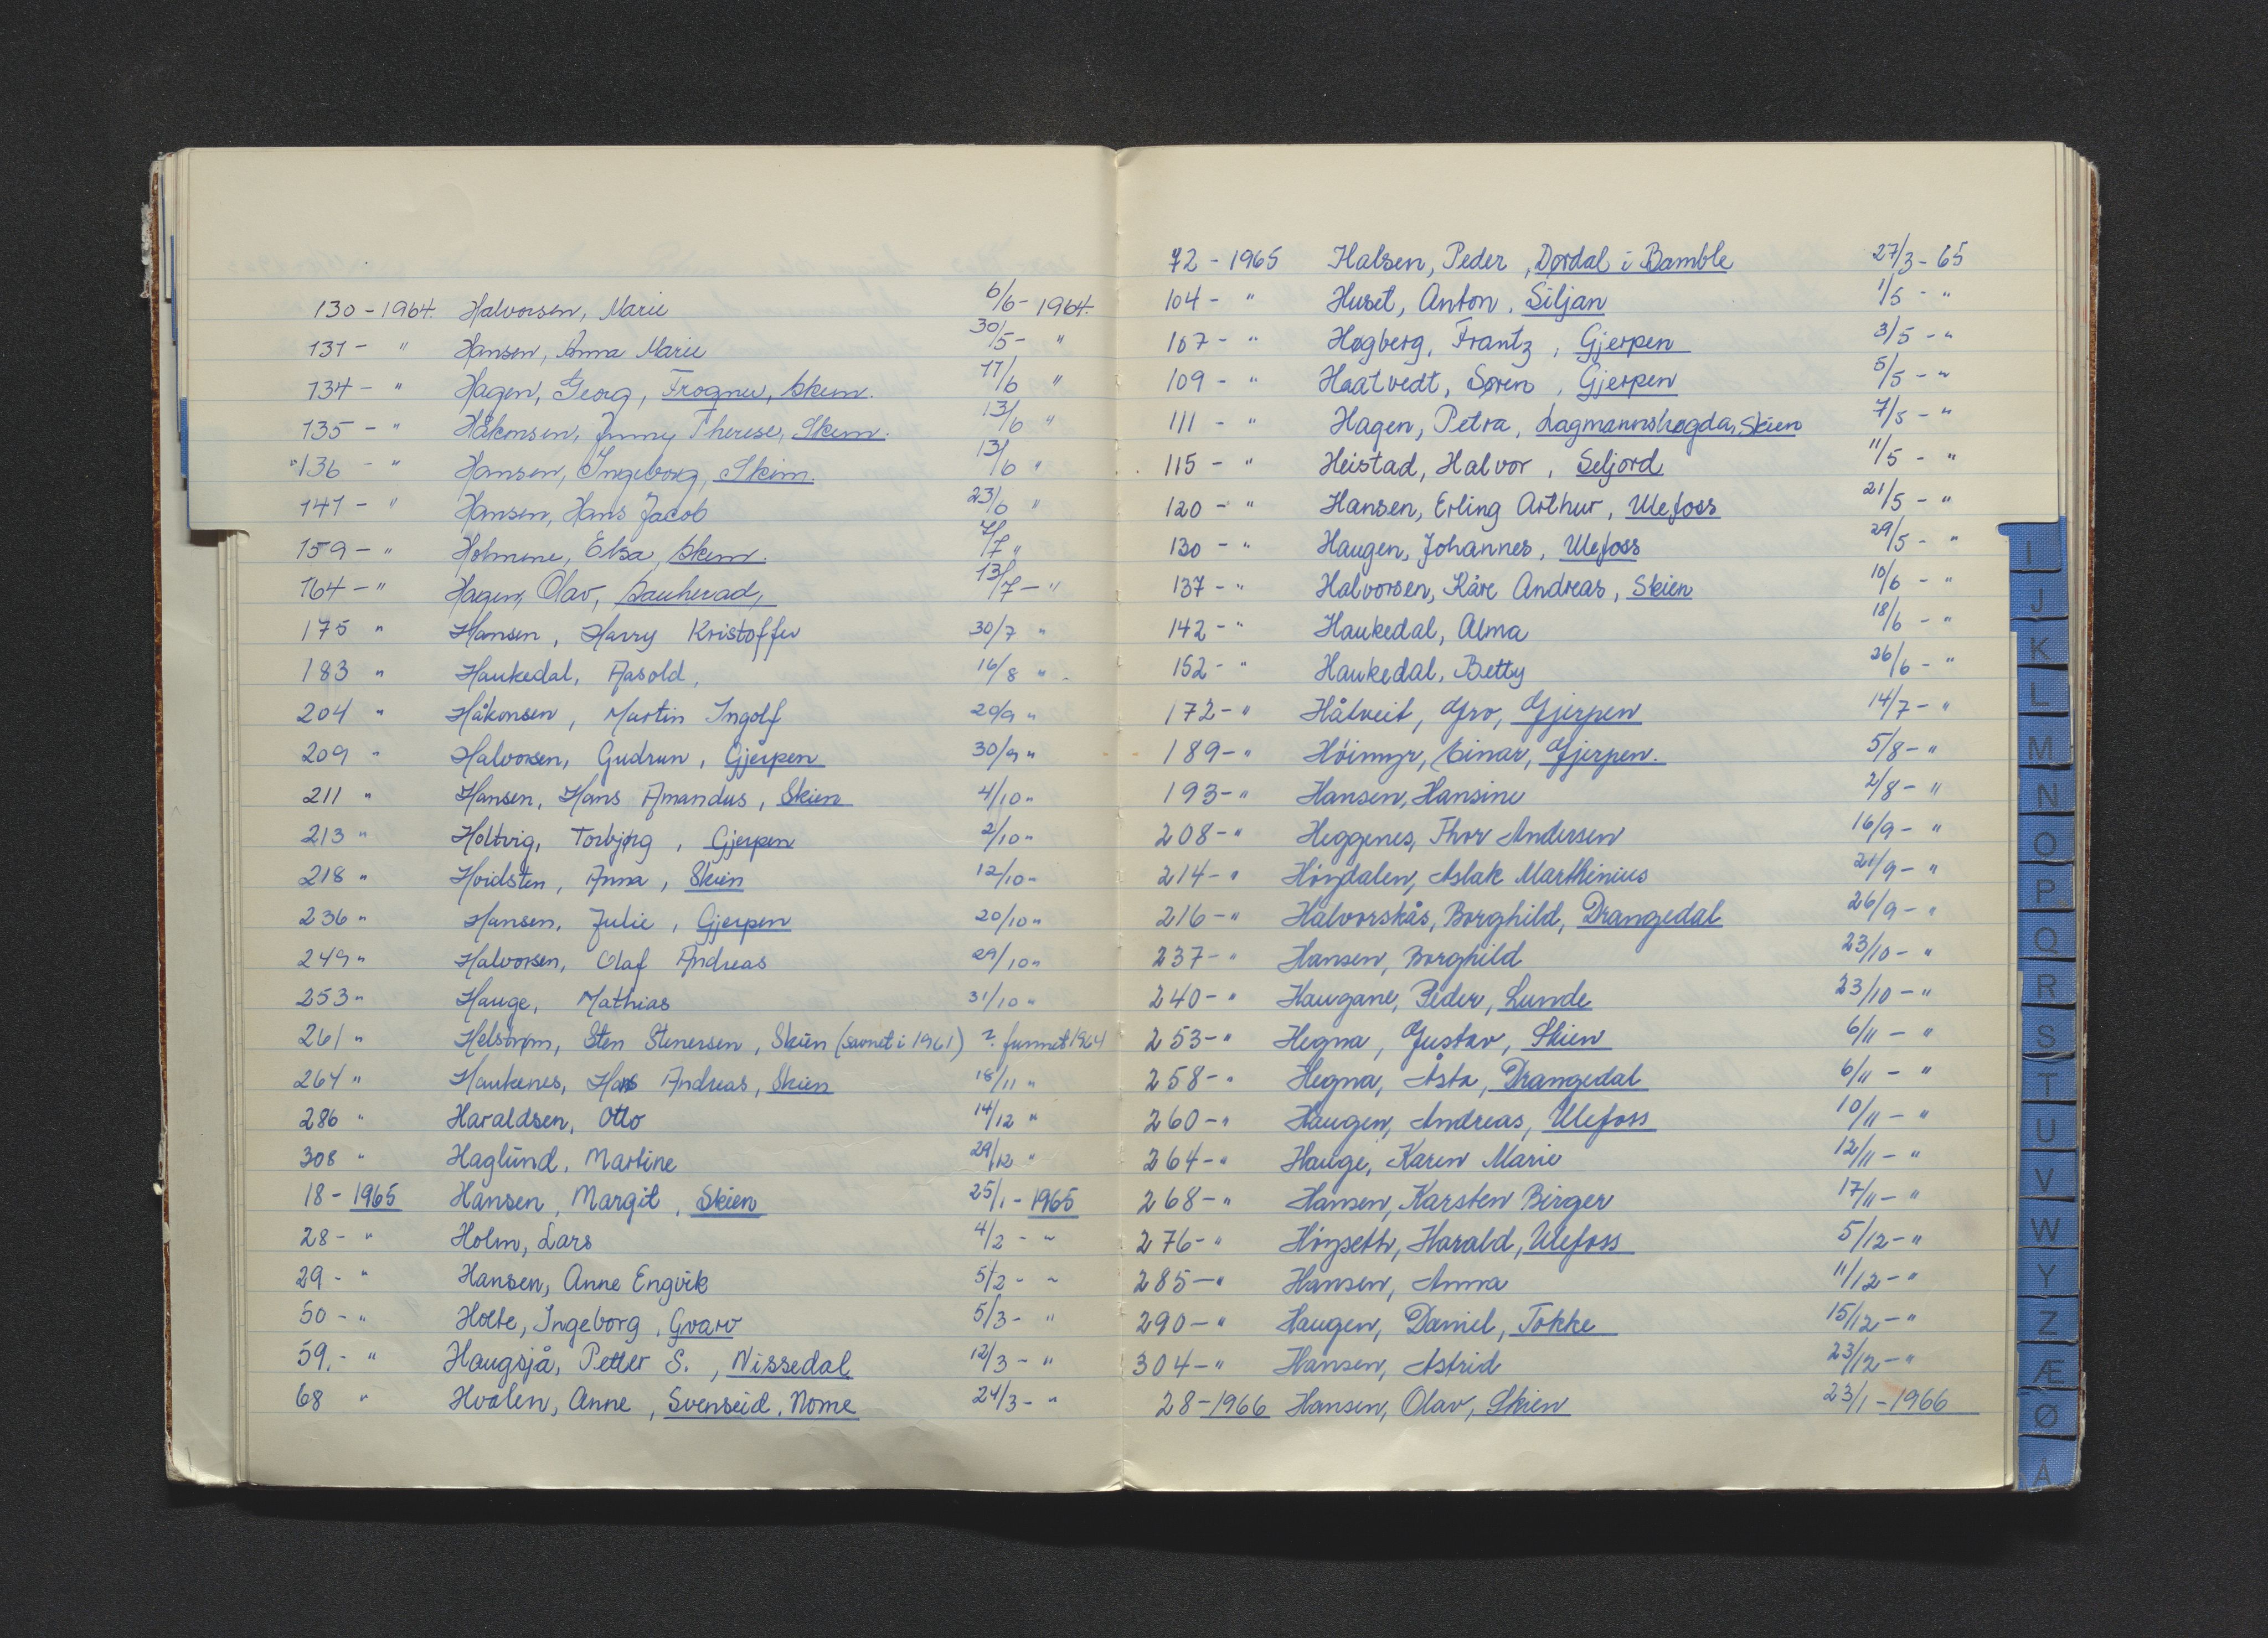 130 - 1964. Halvorsen, Marie 6/6 - 1964.
131 - " Hansen, Anna Marie 30/5 - "
134 - " Hagen, Georg, Frogner, Skien. 11/6 "
135 - " Håkonsen, Jenny Therese, Skien. 13/6 "
136 - " Hansen, Ingeborg, Skien. 13/6 "
141 - " Hansen, Hans Jacob 23/6 "
159 - " Holmene, Elsa, Skien. 7/7 "
164 - " Hagen, Olav, Sauherad, 13/7 - "
175 " Hansen, Harry Kristoffer 30/7 "
183 " Haukedal, Aasold, 16/8 "
204 " Håkonsen, Martin Ingolf 20/9 "
209 " Halvorsen, Gudrun, Gjerpen 30/9 "
211 " Hansen, Hans Amandus, Skien 4/10 "
213 " Holtvig, Torbjørg, Gjerpen 2/10 "
218 " Hvidsten, Anna, Skien 12/10 "
236 " Hansen, Julie, Gjerpen 20/10 "
249 " Halvorsen, Olaf Andreas 29/10 "
253 " Hauge, Mathias 31/10 "
261 " Helstrøm, Sten Stenersen, Skien (savnet i 1961) ? funnet 1964
264 " Haukenes, Hans Andreas, Skien 18/11 "
286 " Haraldsen, Otto 14/12 "
308 " Haglund, Martine 29/12 "
18 - 1965 Hansen, Margit, Skien 25/1 - 1965
28 - " Holm, Lars 4/2 - "
29 - " Hansen, Anne Engvik 5/2 - "
50 - " Holte, Ingeborg, Gvarv 5/3 - "
59. - " Haugsjå, Petter S., Nissedal 12/3 - "
68 " Hvalen, Anne, Svenseid, Nome 24/3 - "
72 - 1965 Halsen, Peder, Dørdal i Bamble 27/3 - 65
104 - " Huset, Anton, Siljan 1/5 - "
107 - " Høgberg, Frantz, Gjerpen 3/5 - "
109 - " Haatvedt, Søren, Gjerpen 5/5 - "
111 - " Hagen, Petra, Lagmannshøgda, Skien 7/5 - "
115 - " Heistad, Halvor, Seljord 11/5 - "
120 - " Hansen, Erling Arthur, Ulefoss 21/5 - "
130 - " Haugen, Johannes, Ulefoss 29/5 - "
137 - " Halvorsen, Kåre Andreas, Skien 10/6 - "
142 - " Haukedal, Alma 18/6 - "
152 - " Haukedal, Betty 26/6 - "
172 - " Håtveit, Gro, Gjerpen 14/7 - "
189 - " Höimyr, Einar, Gjerpen. 5/8 - "
193 - " Hansen, Hansine 2/8 - "
208 - " Heggenes, Thor Andersen 16/9 - "
214 - " Höydalen, Aslak Marthinius 21/9 - "
216 - " Halvorskås, Borghild, Drangedal 26/9 - "
237 - " Hansen, Borghild 23/10 - "
240 - " Haugane, Peder, Lunde 23/10 - "
253 - " Hegna, Gustav, Skien 6/11 - "
258 - " Hegna, Åsta, Drangedal 6/11 - "
260 - " Haugen, Andreas, Ulefoss 10/11 - "
264 - " Hauge, Karen Marie 12/11 - "
268 - " Hansen, Karsten Birger 17/11 - "
276 - " Höyseth, Harald, Ulefoss 5/12 - "
285 - " Hansen, Anna 11/12 - "
290 - " Haugen, Daniel, Tokke 15/12 - "
304 - " Hansen, Astrid 23/12 - "
28 - 1966 Hansen, Olav, Skien 23/1 - 1966
I
J
K
L
M
N
O
P
Q
R
S
T
U
V
W
Y
Z
Æ
Ø
Å